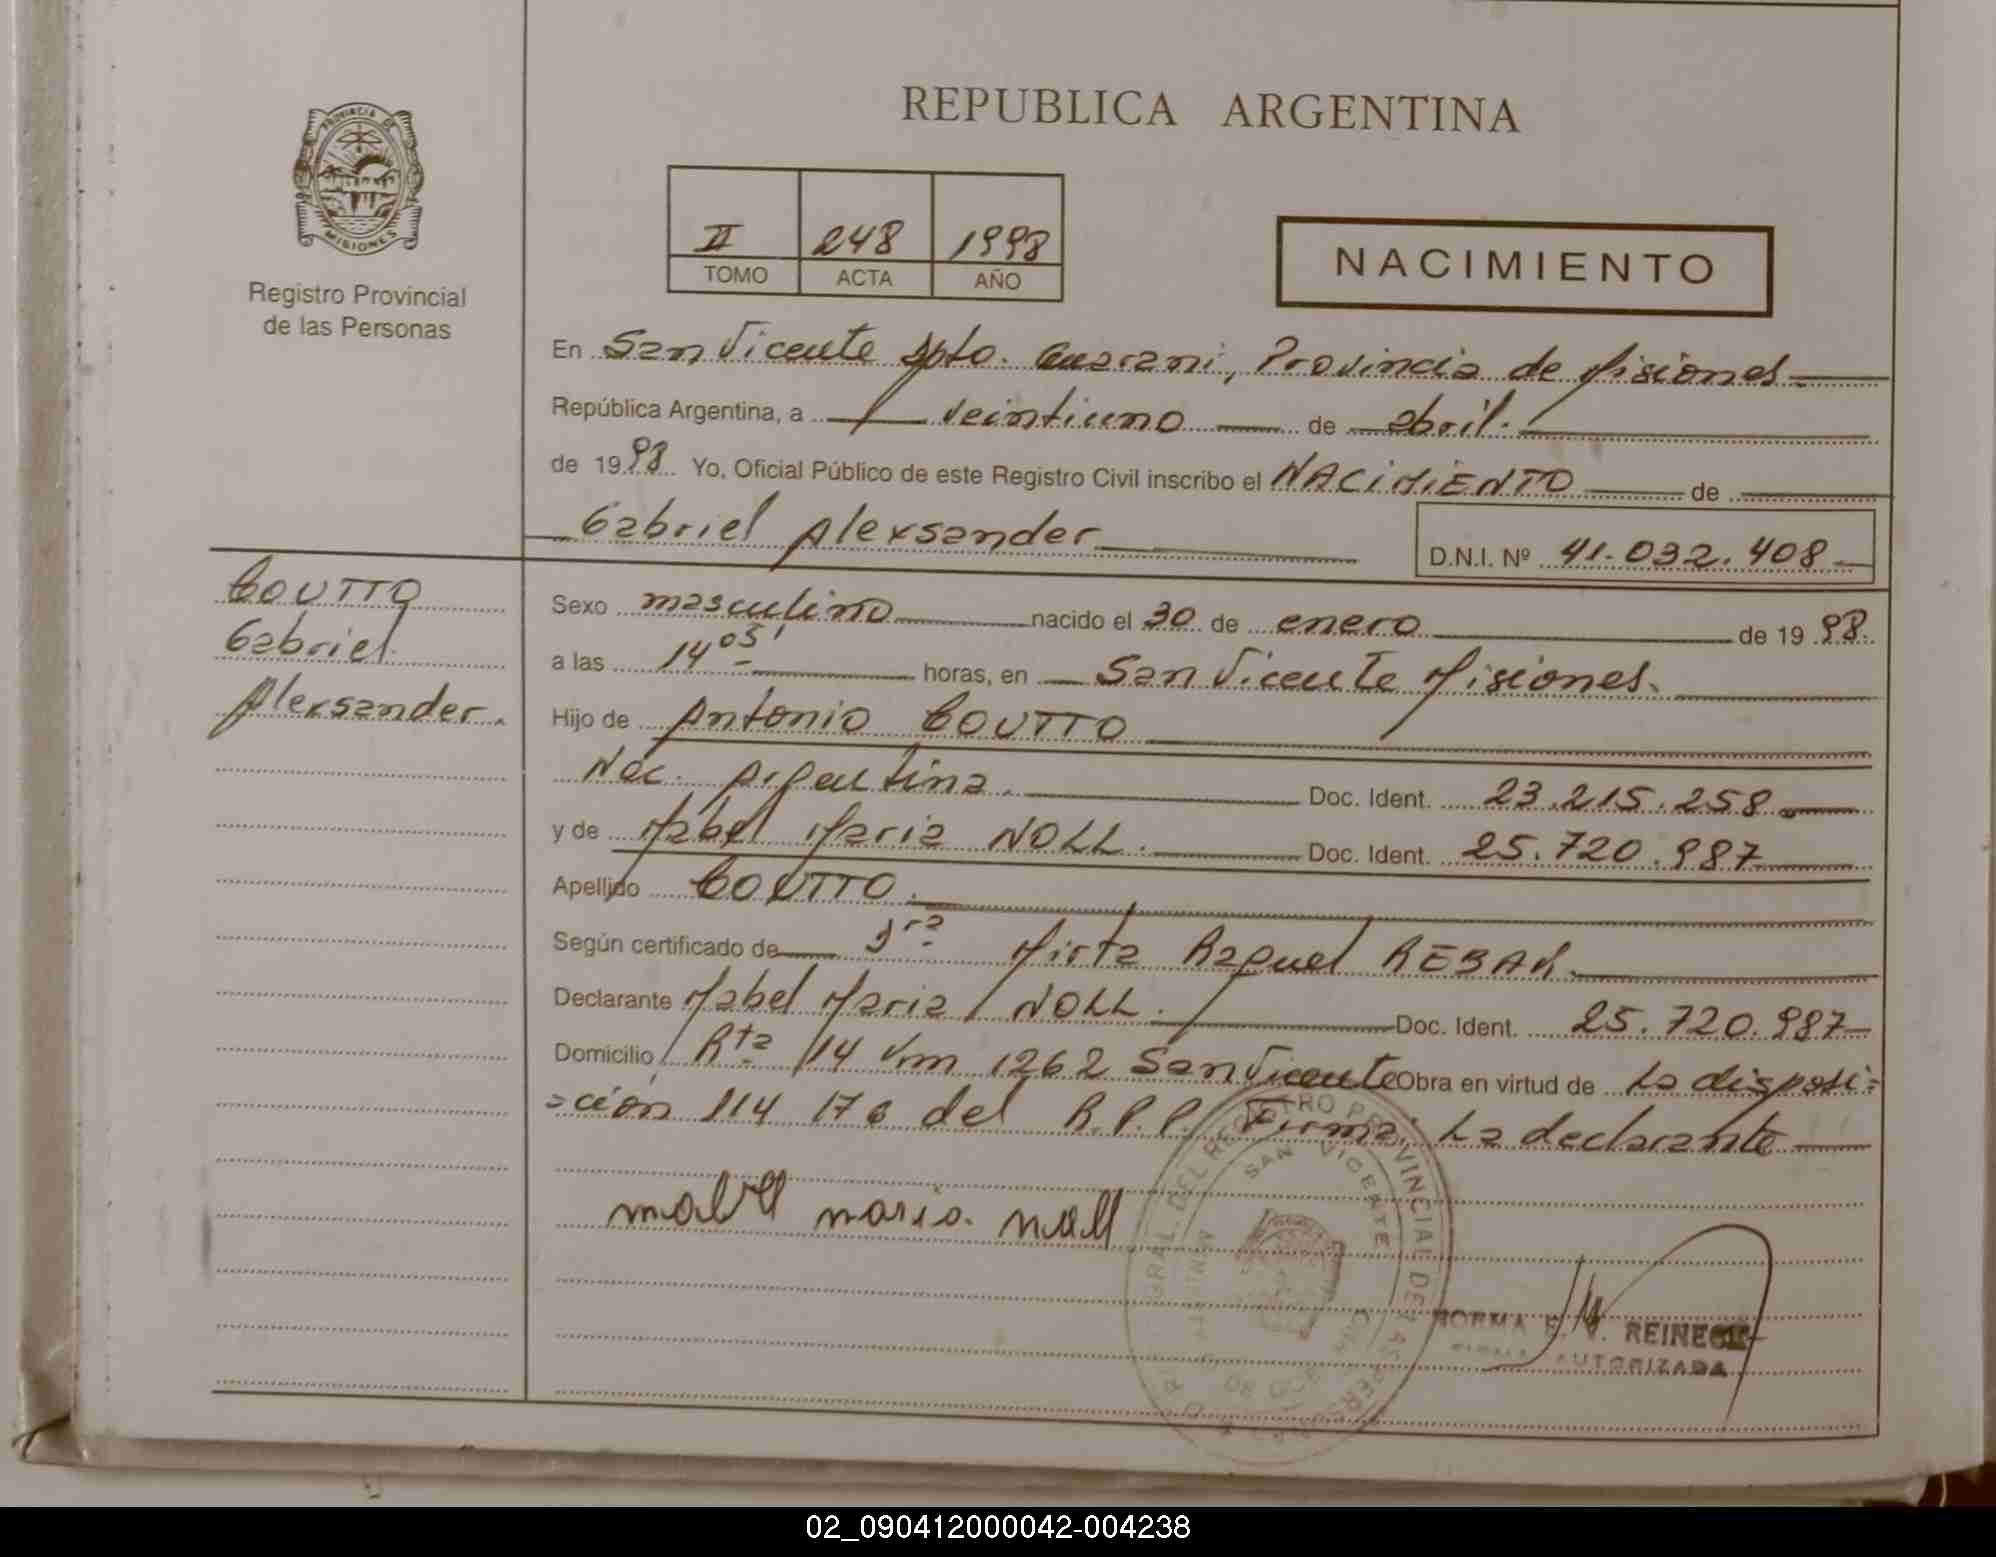 PROVINCIA DE
MISIONES
Registro Provincial
de las Personas
REPUBLICA ARGENTINA
II 248 1998
TOMO ACTA AÑO
NACIMIENTO
En San Vicente Dpto. Guarani, Provincia de Misiones
República Argentina, a veintiuno de abril.
de 1998 Yo, Oficial Público de este Registro Civil inscribo el NACIMIENTO de
Gabriel Alexsander D.N.I. Nº 41.032.408
COUTTO
Gabriel
Alexsander.
Sexo masculino nacido el 30 de enero de 1998.
a las 14 05' horas, en San Vicente Misiones.
Hijo de Antonio COUTTO
Nac. Argentina. Doc. Ident. 23.215.258
y de Mabel Maria NOLL. Doc. Ident. 25.720.987
Apellido COUTTO.
Según certificado de Mirta Raquel
Declarante Mabel Maria NOLL. Doc. Ident. 25.720.987
Domicilio Rta 14 km 1262 San Vicente Obra en virtud de La disposi=
=ción 114 176 del R.P.P. Firma: La declarante
mabel maria. noll
SAN VICENTE
NORMA REINECK
FIRMA AUTORIZADA
02_090412000042-004238